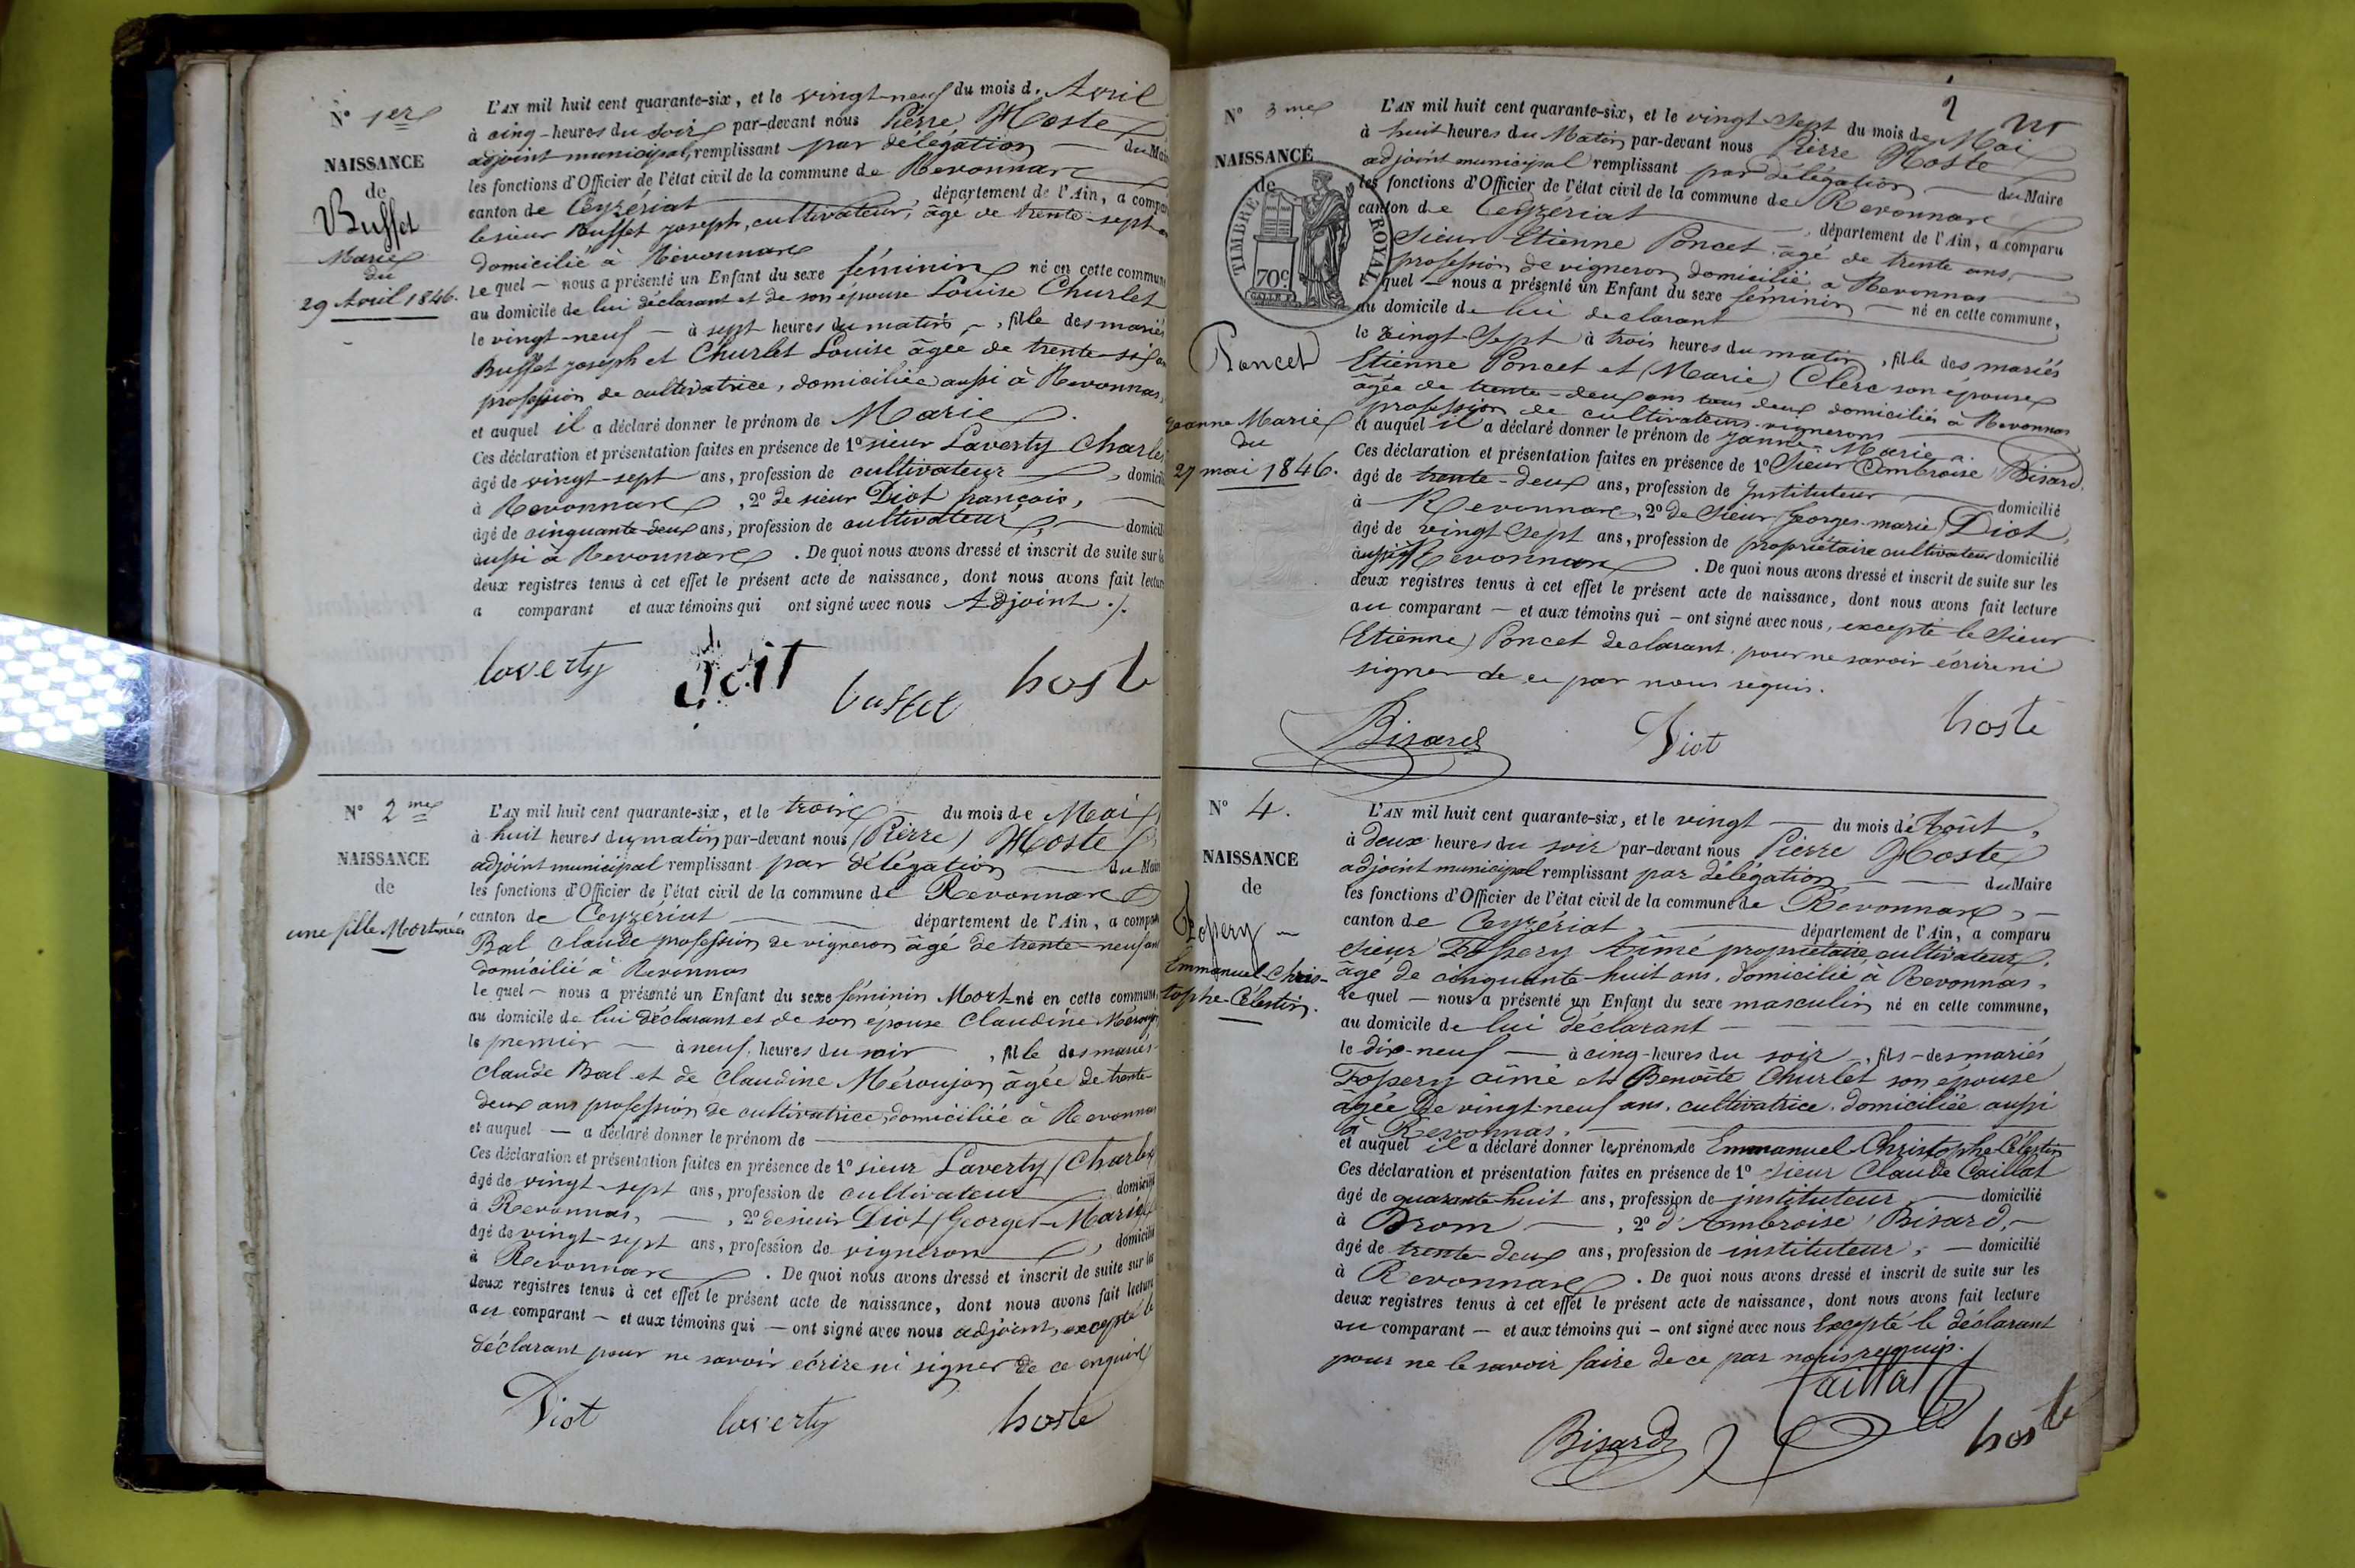 N° 1er
NAISSANCE
de
Buffet
Marie
du
29 Avril 1846.
L'AN mil huit cent quarante-six, et le vingt-neuf du mois d. Avril
à cinq heures du soir par-devant nous Pierre Hoste
adjoint municipal, remplissant par délégation du Mai
les fonctions d'Officier de l'état civil de la commune de Revonnas
canton de Ceyzeriat département de l'Ain, a compa
le sieur Buffet joseph, cultivateur, âgé de trente-sept
domicilié à Révonnas
Le quel nous a présenté un Enfant du sexe féminin né en cette commun
au domicile de lui déclarant et de son épouse Louise Churlet
le vingt-neuf à sept heures du matin, fille des mariés
Buffet joseph et Churlet Louise âgée de trente-six
profession de cultivatrice, domiciliée aussi à Revonnas,
et auquel il a déclaré donner le prénom de Marie
Ces déclaration et présentation faites en présence de 1° sieur Laverty Charles
âgé de vingt-sept ans, profession de cultivateur, domicil
à Revonnas, 2° de sieur Diot françois,
âgé de cinquante deux ans, profession de cultivateur, domicil
aussi à Revonnas. De quoi nous avons dressé et inscrit de suite sur le
deux registres tenus à cet effet le présent acte de naissance, dont nous avons fait lectur
a comparant et aux témoins qui ont signé avec nous Adjoint ./.
laverty buffet hoste
N° 2me
NAISSANCE
de
une fille Mort-née
L'AN mil huit cent quarante-six, et le trois du mois de Mai
à huit heures du matin par-devant nous (Pierre) Hoste
adjoint municipal remplissant par délégation du Mai
les fonctions d'Officier de l'état civil de la commune de Revonnas
canton de Ceyzeriat département de l'Ain, a compa
Bal Claude profession de vigneron âgé de trente-neuf ans
domicilié à Revonnas
le quel nous a présenté un Enfant du sexe féminin Mort-né en cette commune
au domicile de lui déclarant et de son épouse Claudine Méroujon
le premier à neuf heures du soir, fille des mariés
Claude Bal et de Claudine Méroujon âgée de trente-
deux ans profession de cultivatrice, domiciliée à Revonnas
et auquel — a déclaré donner le prénom de —
Ces déclaration et présentation faites en présence de 1° sieur Laverty (Charles
âgé de vingt-sept ans, profession de cultivateur domicilié
à Revonnas, 2° de sieur Diot (Georges-Marie)
âgé de vingt-sept ans, profession de vigneron, domicilié
à Revonnas. De quoi nous avons dressé et inscrit de suite sur les
deux registres tenus à cet effet le présent acte de naissance, dont nous avons fait lecture
au comparant — et aux témoins qui — ont signé avec nous adjoint, excepté le
déclarant pour ne savoir écrire ni signer de ce enquis
Diot laverty hoste
2
N° 3me
NAISSANCE
de
TIMBRE ROYAL
70c.
Poncet
Jeanne Marie
du
27 mai 1846.
L'AN mil huit cent quarante-six, et le vingt-Sept du mois de Mai
à huit heures du Matin par-devant nous Pierre Hoste
adjoint municipal remplissant par délégation du Maire
les fonctions d'Officier de l'état civil de la commune de Revonnas
canton de Ceyzériat, département de l'Ain, a comparu
Sieur Etienne Poncet âgé de trente ans,
profession de vigneron domicilié à Revonnas
quel nous a présenté un Enfant du sexe féminin né en cette commune,
au domicile de lui declarant
le vingt-Sept à trois heures du matin, fille des mariés
Etienne Poncet et (Marie) Clerc son épouse
âgée de trente-deux ans tous deux domiciliés à Revonnas
profession de cultivateurs-vignerons
et auquel il a déclaré donner le prénom de Jeanne-Marie.
Ces déclaration et présentation faites en présence de 1° Sieur Ambroise Bisard
âgé de trente-deux ans, profession de Instituteur domicilié
à Revonnas, 2° de Sieur Georges-marie Diot,
âgé de vingt Sept ans, profession de propriétaire cultivateur domicilié
aussi à Revonnas. De quoi nous avons dressé et inscrit de suite sur les
deux registres tenus à cet effet le présent acte de naissance, dont nous avons fait lecture
au comparant — et aux témoins qui — ont signé avec nous, excepté le Sieur
(Etienne) Poncet declarant pour ne savoir écrire ni
signer de ce par nous requis.
Bisard Diot hoste
N° 4.
NAISSANCE
de
Fopery
Emmanuel-Chris-
tophe-Célestin.
L'AN mil huit cent quarante-six, et le vingt — du mois d'Août,
à deux heures du soir par-devant nous Pierre Hoste
adjoint municipal remplissant par délégation — du Maire
les fonctions d'Officier de l'état civil de la commune de Revonnas,
canton de Ceyzériat, département de l'Ain, a comparu
sieur Fopery Aimé propriétaire cultivateur,
âgé de cinquante-huit ans, domicilié à Revonnas,
le quel — nous a présenté un Enfant du sexe masculin né en cette commune,
au domicile de lui déclarant
le dix-neuf — à cinq heures du soir, fils des mariés
Fopery aimé et Benoîte Churlet son épouse
âgée de vingt-neuf ans, cultivatrice, domiciliée aussi
à Revonnas.
et auquel il a déclaré donner le prénom de Emmanuel Christophe Célestin
Ces déclaration et présentation faites en présence de 1° sieur Claude Caillat
âgé de quarante-huit ans, profession de instituteur domicilié
à Drom, 2° d'Ambroise Bisard,
âgé de trente-deux ans, profession de instituteur, domicilié
à Revonnas. De quoi nous avons dressé et inscrit de suite sur les
deux registres tenus à cet effet le présent acte de naissance, dont nous avons fait lecture
au comparant — et aux témoins qui — ont signé avec nous Excepté le déclarant
pour ne le savoir faire de ce par nous requis.
Caillat
Bisard hoste